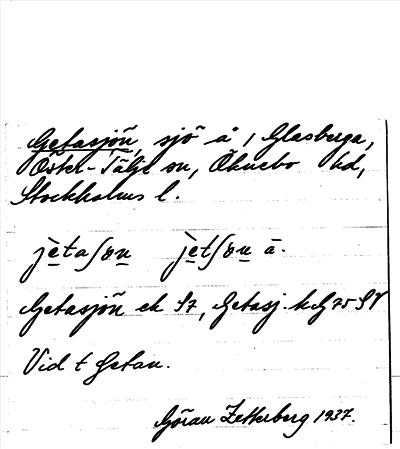 Getasjön, sjö å / Glasberga,
Öster-Tälje sn, Öknebo hd,
Stockholms l.
jètaʃøn jètʃøn ā.
Getasjön ek S7, Getasj. kG 75 SV
Vid t Getan.
Göran Zetterberg 1937.